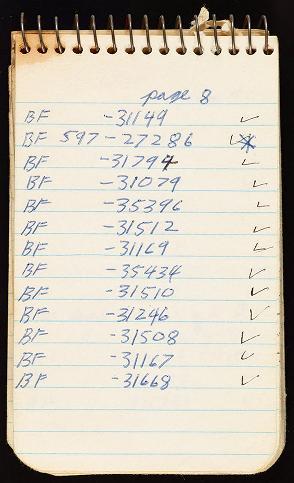 page 8
BF -31149 ✓
BF 597-27286 ✓*
BF -31794 ✓
BF -31079 ✓
BF -35396 ✓
BF -31512 ✓
BF -31169 ✓
BF -35434 ✓
BF -31510 ✓
BF -31246 ✓
BF -31508 ✓
BF -31167 ✓
BF -31668 ✓